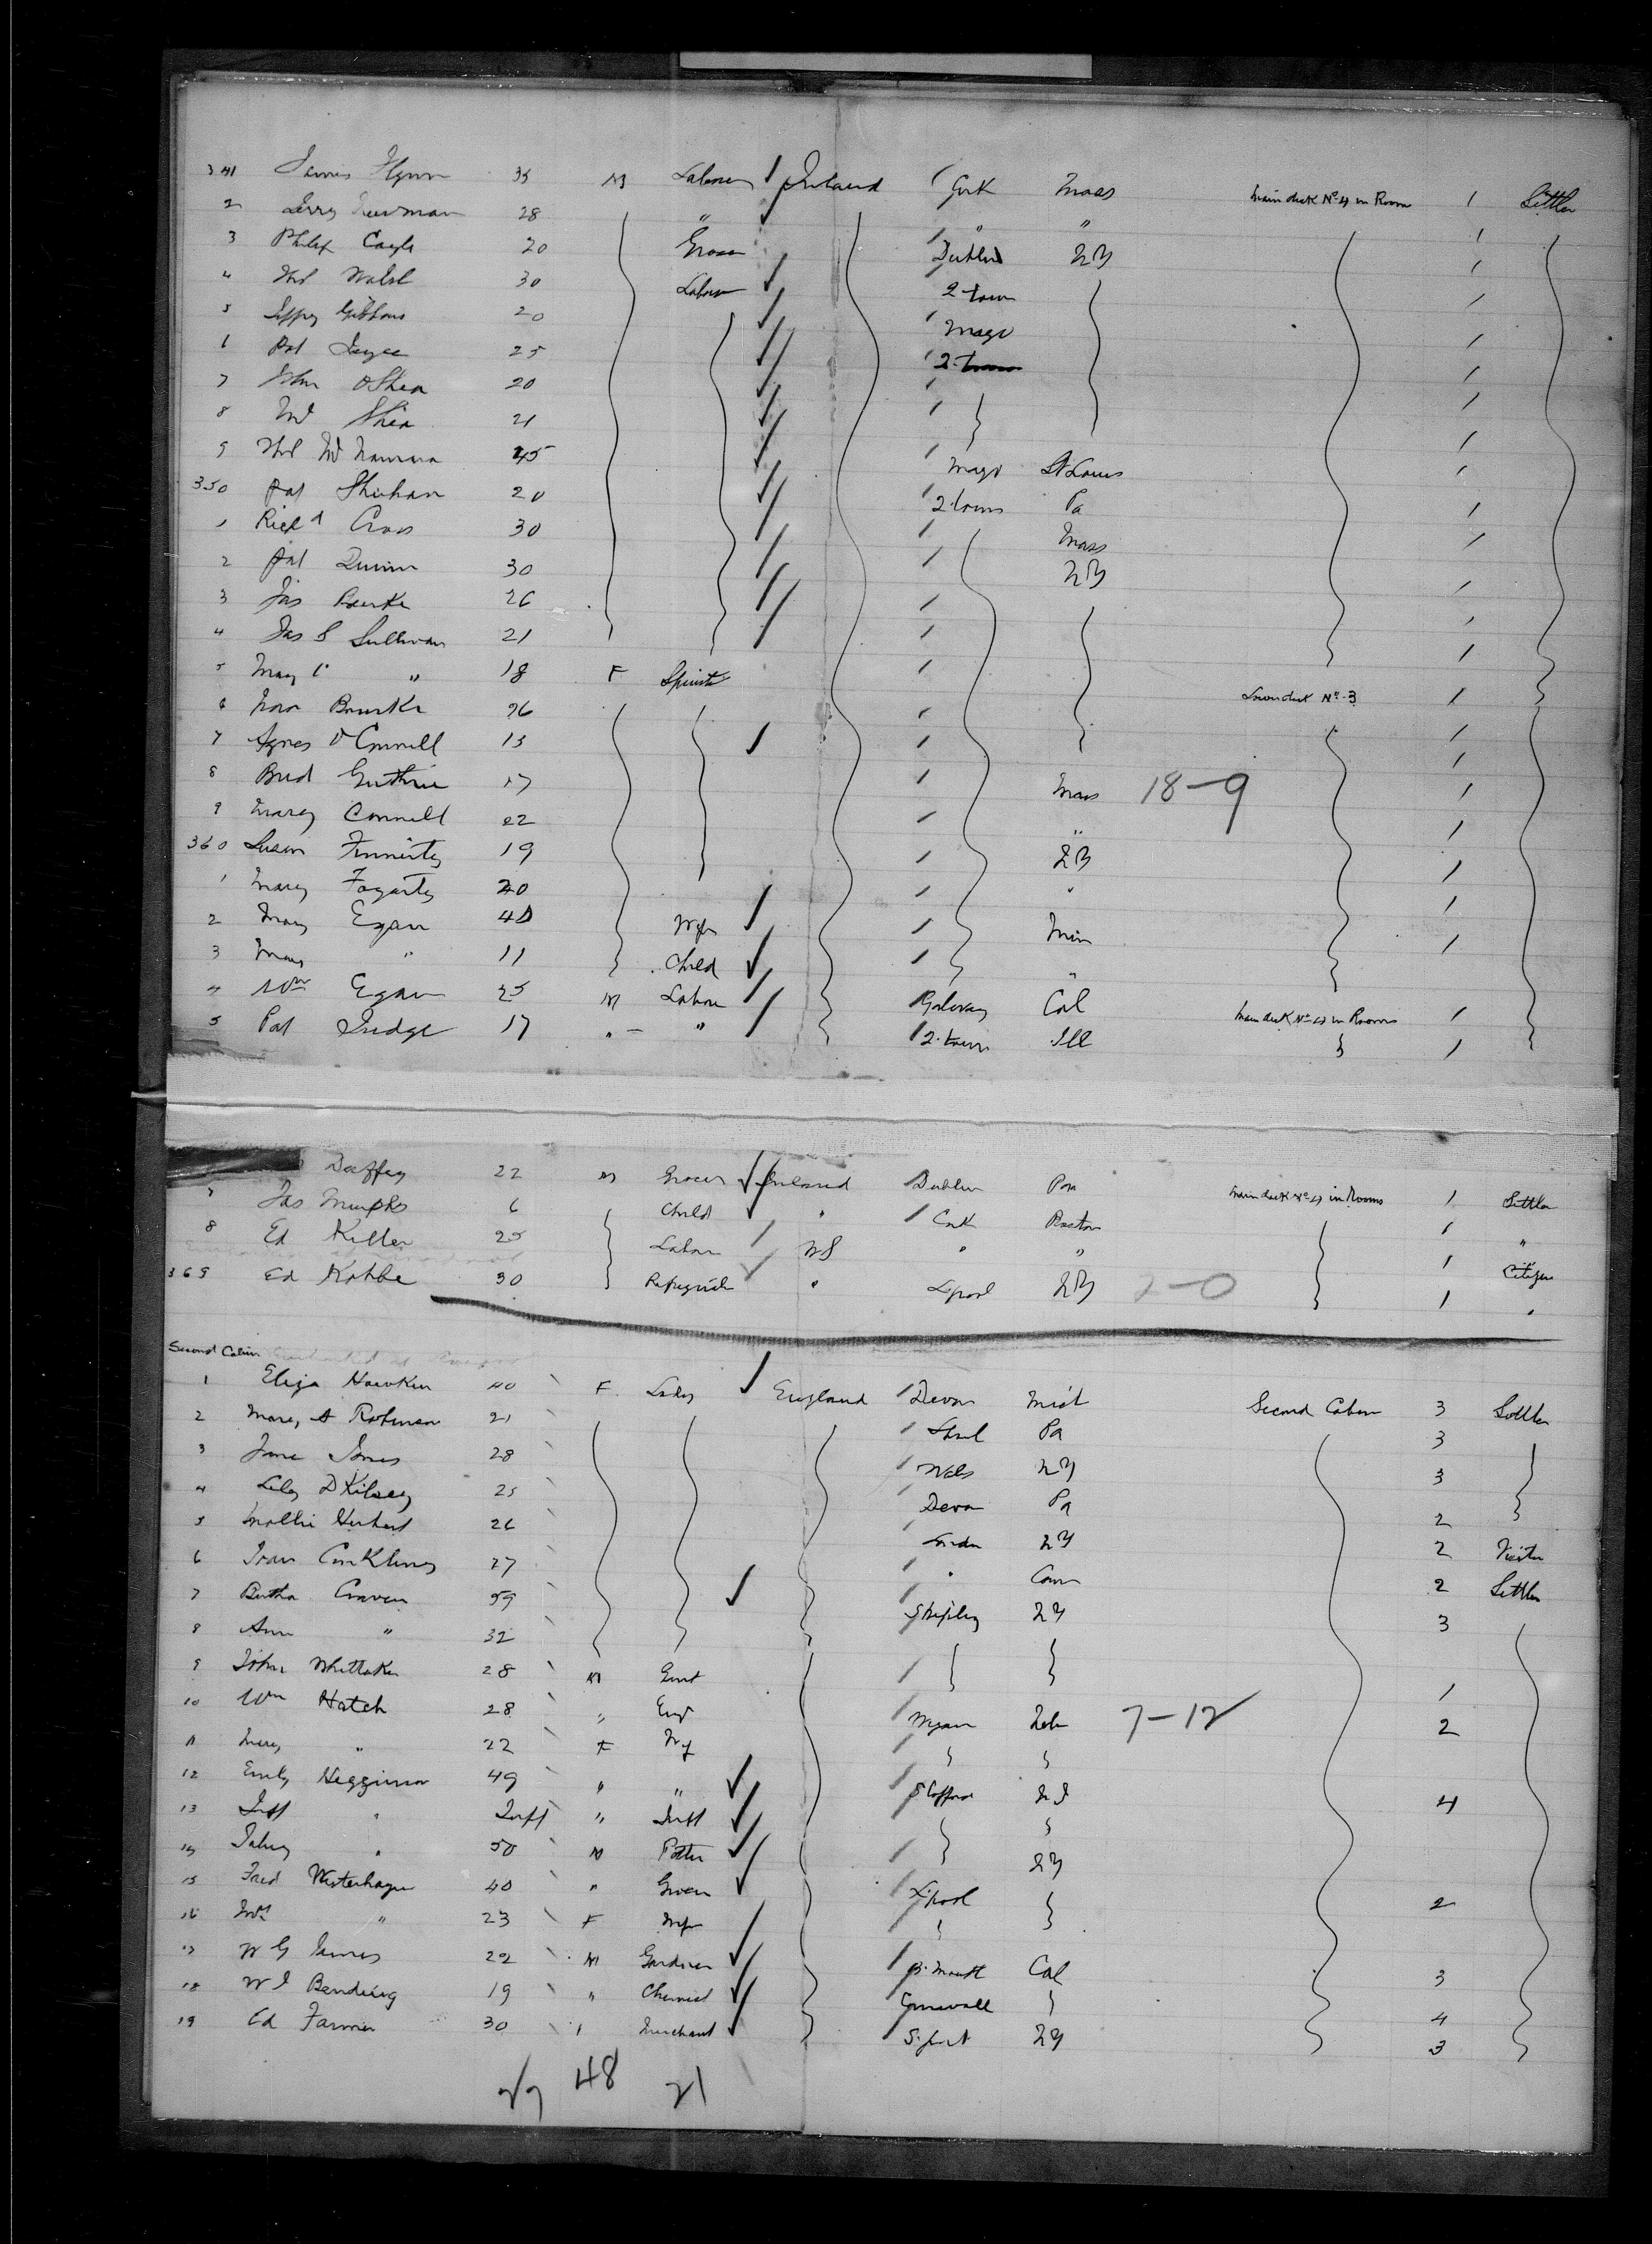 341 James Flynn 35 M Laborer Ireland Cork Mass Main deck No 4 in Room 1 Settler
2 Jerry 28 " " " 1
3 Philip 20 Grocer Dublin NY 1
4 Walsh 30 Labor 2-town 1
5 Gibbons 20 Mayo 1
6 Pat Joyce 25 2-town 1
7 John O'Shea 20 1
8 Md Shea 21 1
9 McNamara 45 Mayo St Louis 1
350 Pat Sheehan 20 2-towns Pa 1
1 Richd Cross 30 Mass 1
2 Pat Quinn 30 NY 1
3 Jas Burke 26 1
4 Jas S Sullivan 21 1
5 Mary " 18 F Spinster Lower deck No 3 1
6 Nora Bourke 26 1
7 Agnes O'Connell 13 1
8 Brid Guthrie 17 Mass 18-9 1
9 Mary Connell 22 " 1
360 Susan Finnerty 19 NY 1
1 Mary Fogarty 20 " 1
2 Mary Egan 40 Wife Min 1
3 Mary " 11 Child "
4 Wm Egan 25 M Labor Galway Cal Main deck No 4 in Rooms 1
5 Pat Judge 17 " " 2-town Ill 1
Duffey 22 M Grocer Ireland Dublin Main deck No 4 in Rooms 1 Settler
7 Jas Murphy 6 Child " Cork Boston 1 "
8 Ed Keller 25 Labor US " " 1 Citizen
369 Ed Kohbe 30 " L.pool NY 2-0 1 "
Second Cabin
1 Eliza Hawken 40 F Lady England Devon Mich Second Cabin 3 Settler
2 Mary A Robinson 21 Pa 3
3 Jane Jones 28 Wales NY 3
4 Lily D Kilsey 25 Devon Pa 2
5 Mollie Herbert 26 London NY 2 Visitor
6 Conkling 27 " Conn 2 Settler
7 Bertha Craven 59 Shipley NY 3
8 Ann " 32
9 John Whittaker 28 M Gent 1
10 Wm Hatch 28 " Wigan Neb 7-12 2
11 Mary " 22 F Wf
12 Emily Higginson 49 " " Stafford NJ 4
13 Inft " Inft " Inft
14 " 50 M Potter NY
15 Fred Westerhagen 40 " Grocer L.pool 2
16 Mrs " 23 F Wife
17 W G James 22 M Gardiner Cal 3
18 W J Bending 19 " Chemist Cornwall 4
19 Ed Farmer 30 " Merchant S.port NY 3
27 48 21